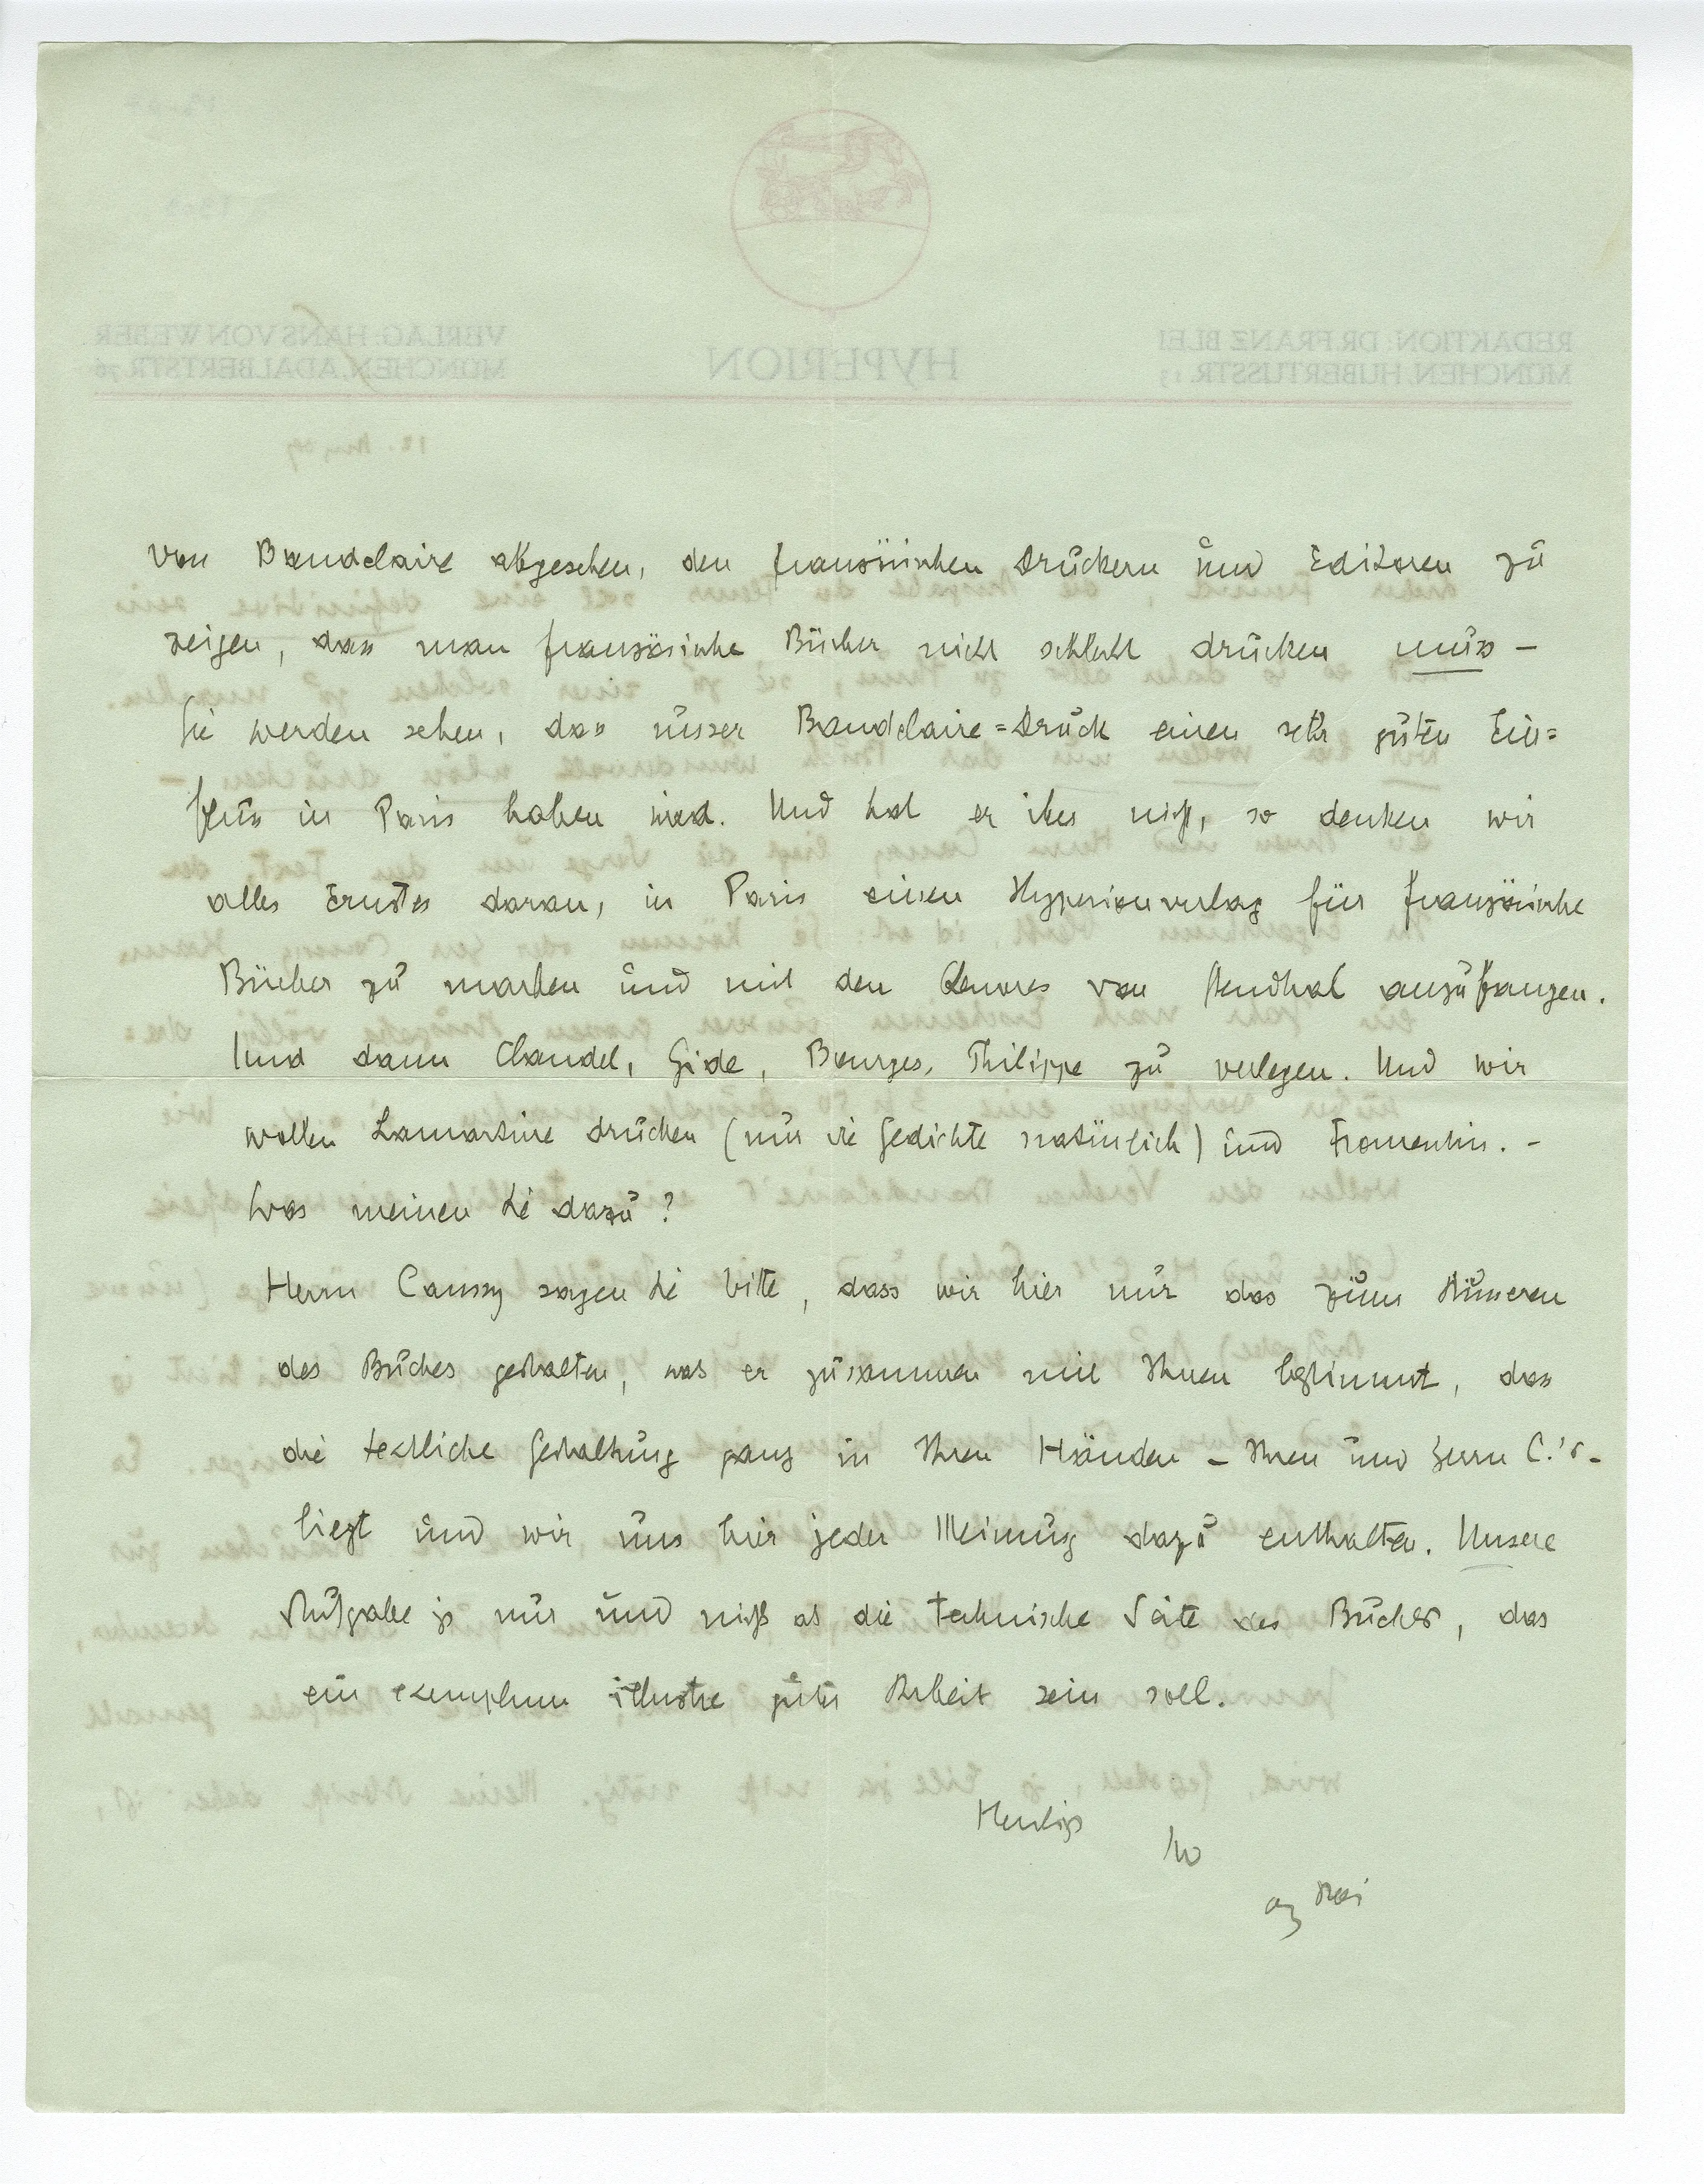 von Baudelaire abgesehen, den französischen Druckern und Editoren zu
zeigen, dass man französische Bücher nicht schlecht drucken muss –
Sie werden sehen, dass unser Baudelaire=Druck einen sehr guten Ein=
fluss in Paris haben wird. Und hat er ihn nicht, so denken wir
alles Ernstes daran, in Paris einen Hyperionverlag für französische
Bücher zu machen und mit den Oeuvres von Stendhal anzufangen.
Und dann Claudel, Gide, Bourges, Philippe zu verlegen. Und wir
wollen Lamartine drucken (nur die Gedichte natürlich) und Fromentin. –
Was meinen Sie dazu?
Herrn Caussy sagen Sie bitte, dass wir hier nur das zum Äusseren
des Buches gestalten, was er zusammen mit Ihnen bestimmt, dass
die textliche Gestaltung ganz in Ihren Händen – Ihren und Herrn C.'s –
liegt und wir uns hier jeder Meinung dazu enthalten. Unsere
Aufgabe ist nur und nichts als die technische Seite des Buches, das
ein exemplum illustre guter Arbeit sein soll.
Herzlichst
Ihr
Blei
REDAKTION: DR. FRANZ BLEI
MÜNCHEN, HUBERTUSSTR. 13
HYPERION
VERLAG: HANS VON WEBER
MÜNCHEN, ADALBERTSTR. 76